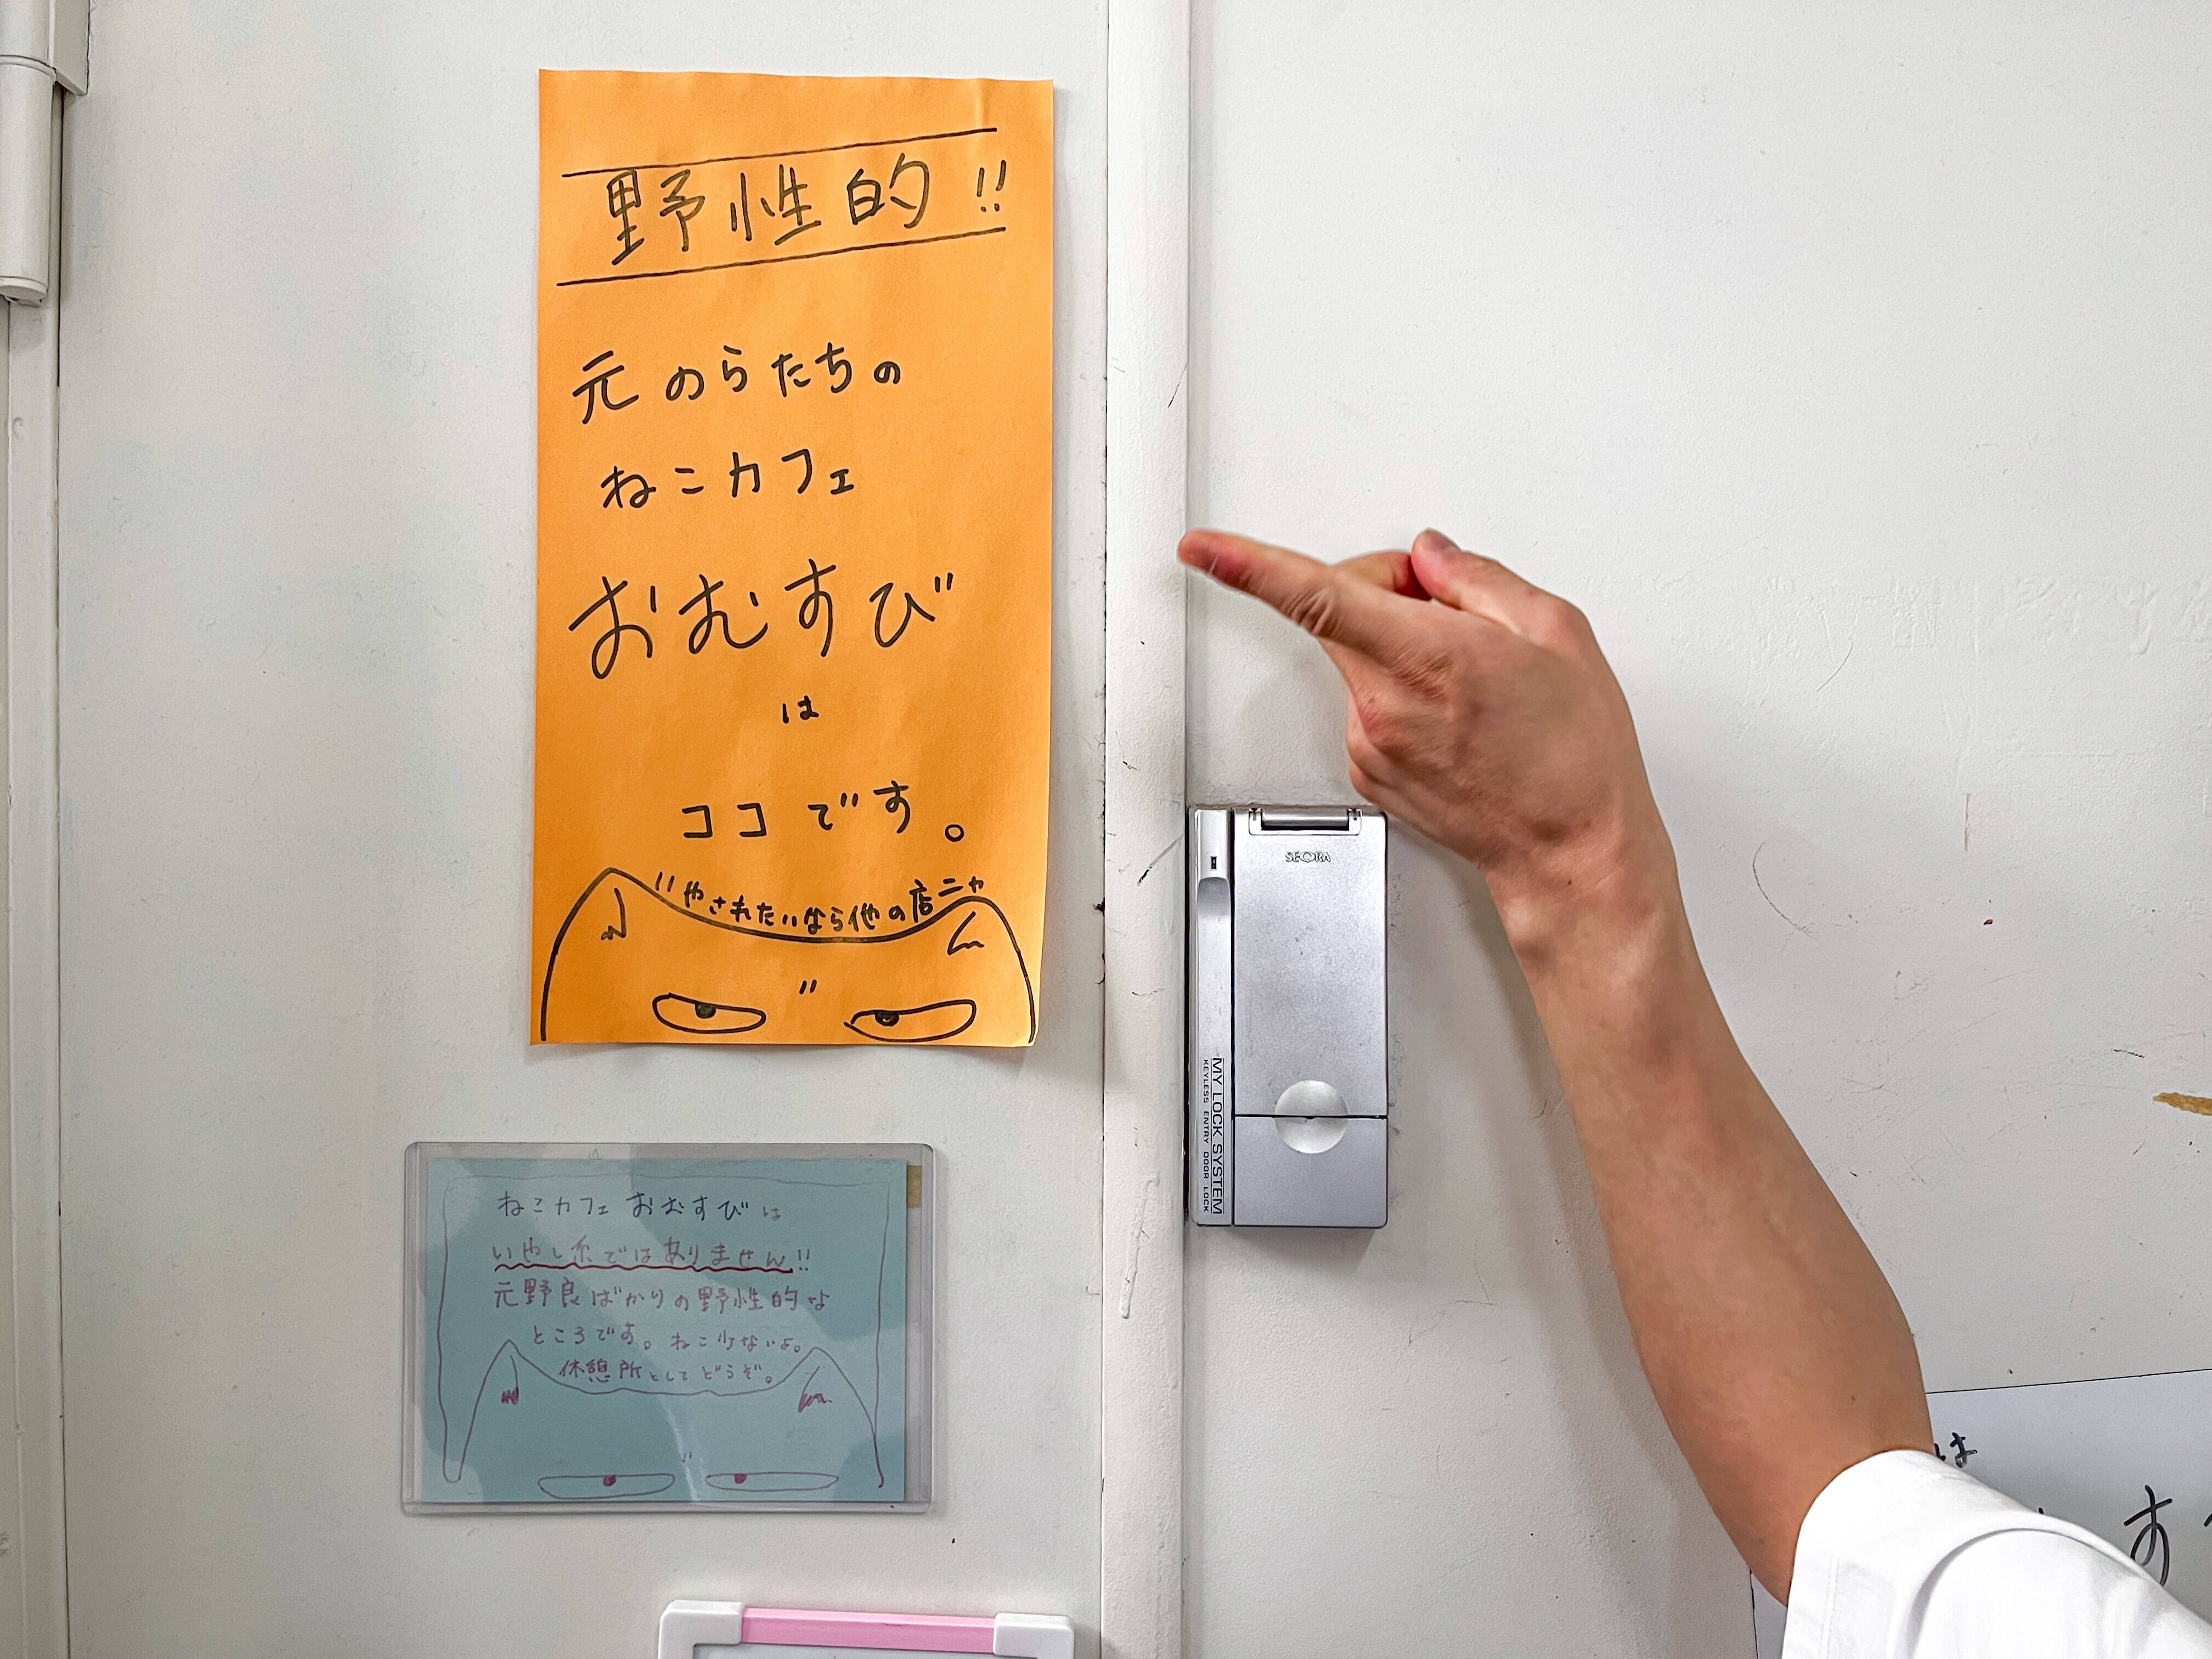 野性的!!
元のらたちの
ねこカフェ
おむすび
は
ココです。
いやされたいなら他の店ニャ
SEORA
MY LOCK SYSTEM
KEYLESS ENTRY DOOR LOCK
ねこカフェ おむすびは
いやし系ではありません!!
元野良ばかりの野性的な
ところです。ねこ少ないよ。
休憩所としてどうぞ。
は
す